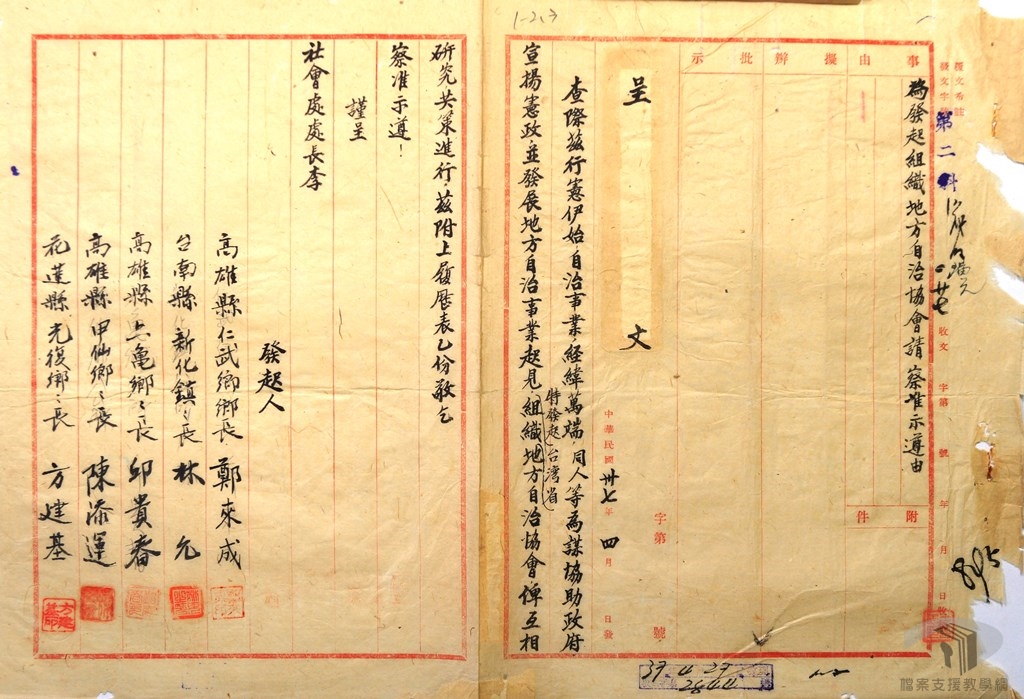 1-2,3
事由
擬辦
批示
附件
為發起組織地方自治協會請 察准示遵由
第二科
收文 字第 號 年 月 日
895
呈 文
字第 號
中華民國卅七年四月 日發
查際茲行憲伊始，自治事業，經緯萬端，同人等為謀協助政府
宣揚憲政，並發展地方自治事業起見，特發起組織台灣省地方自治協會俾互相
研究共策進行，茲附上履歷表乙份敬乞
察准示遵！
謹呈
社會處處長李
發起人
高雄縣仁武鄉鄉長 鄭來成
台南縣新化鎮〻長 林允
高雄縣六龜鄉〻長 邱貴春
高雄縣甲仙鄉〻長 陳添運
花蓮縣光復鄉〻長 方建基
37.4.27
2844
檔案支援教學網